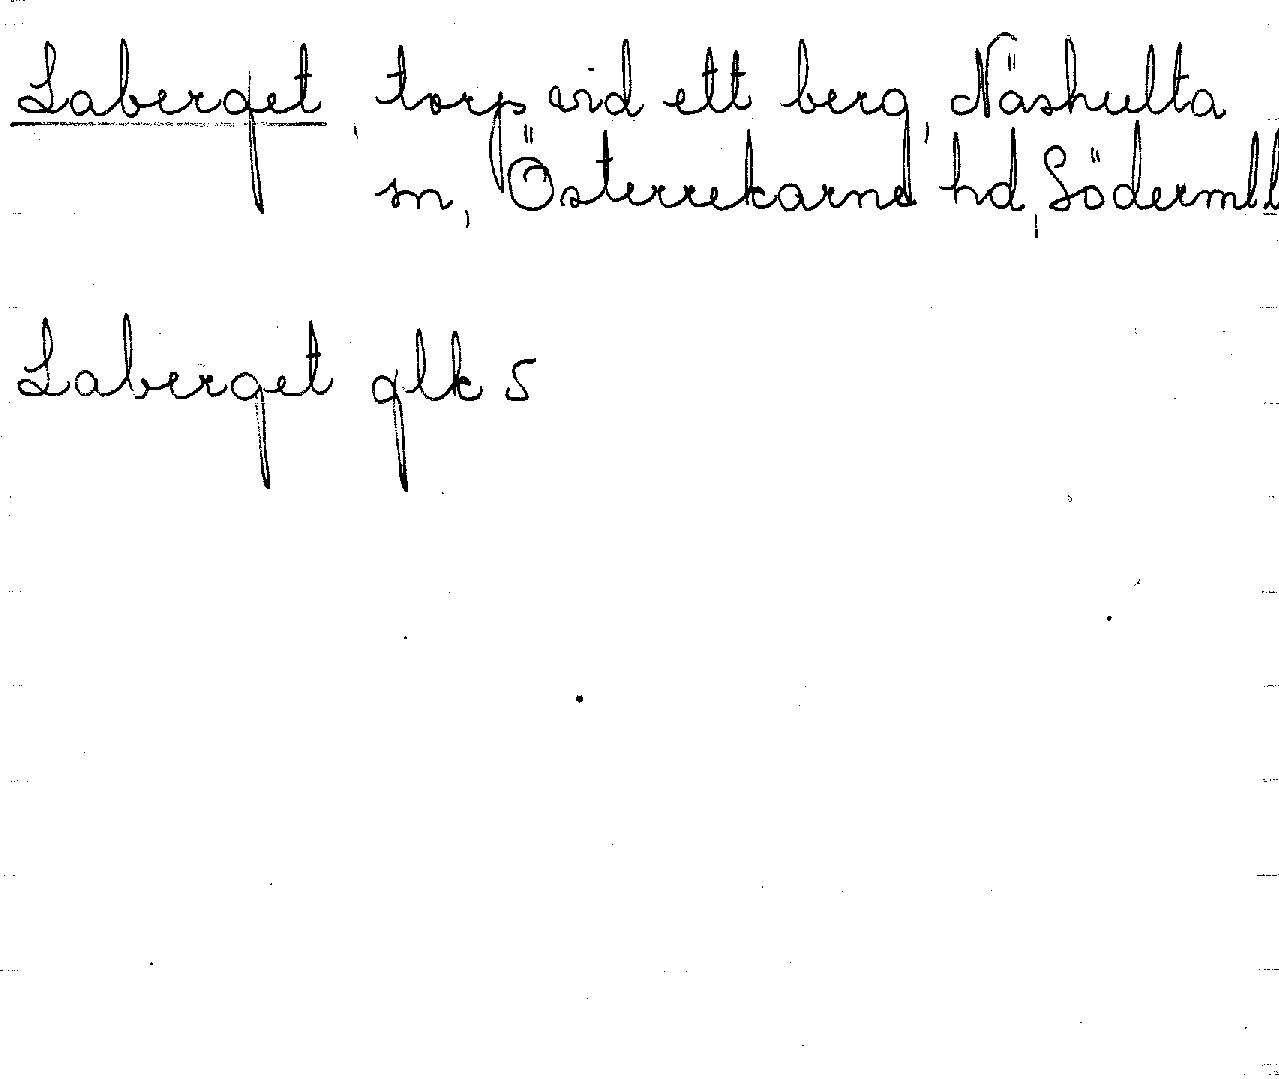 Laberget, torp vid ett berg, Näshulta
sn, Österrekarne hd, Södermll
Laberget glk 5